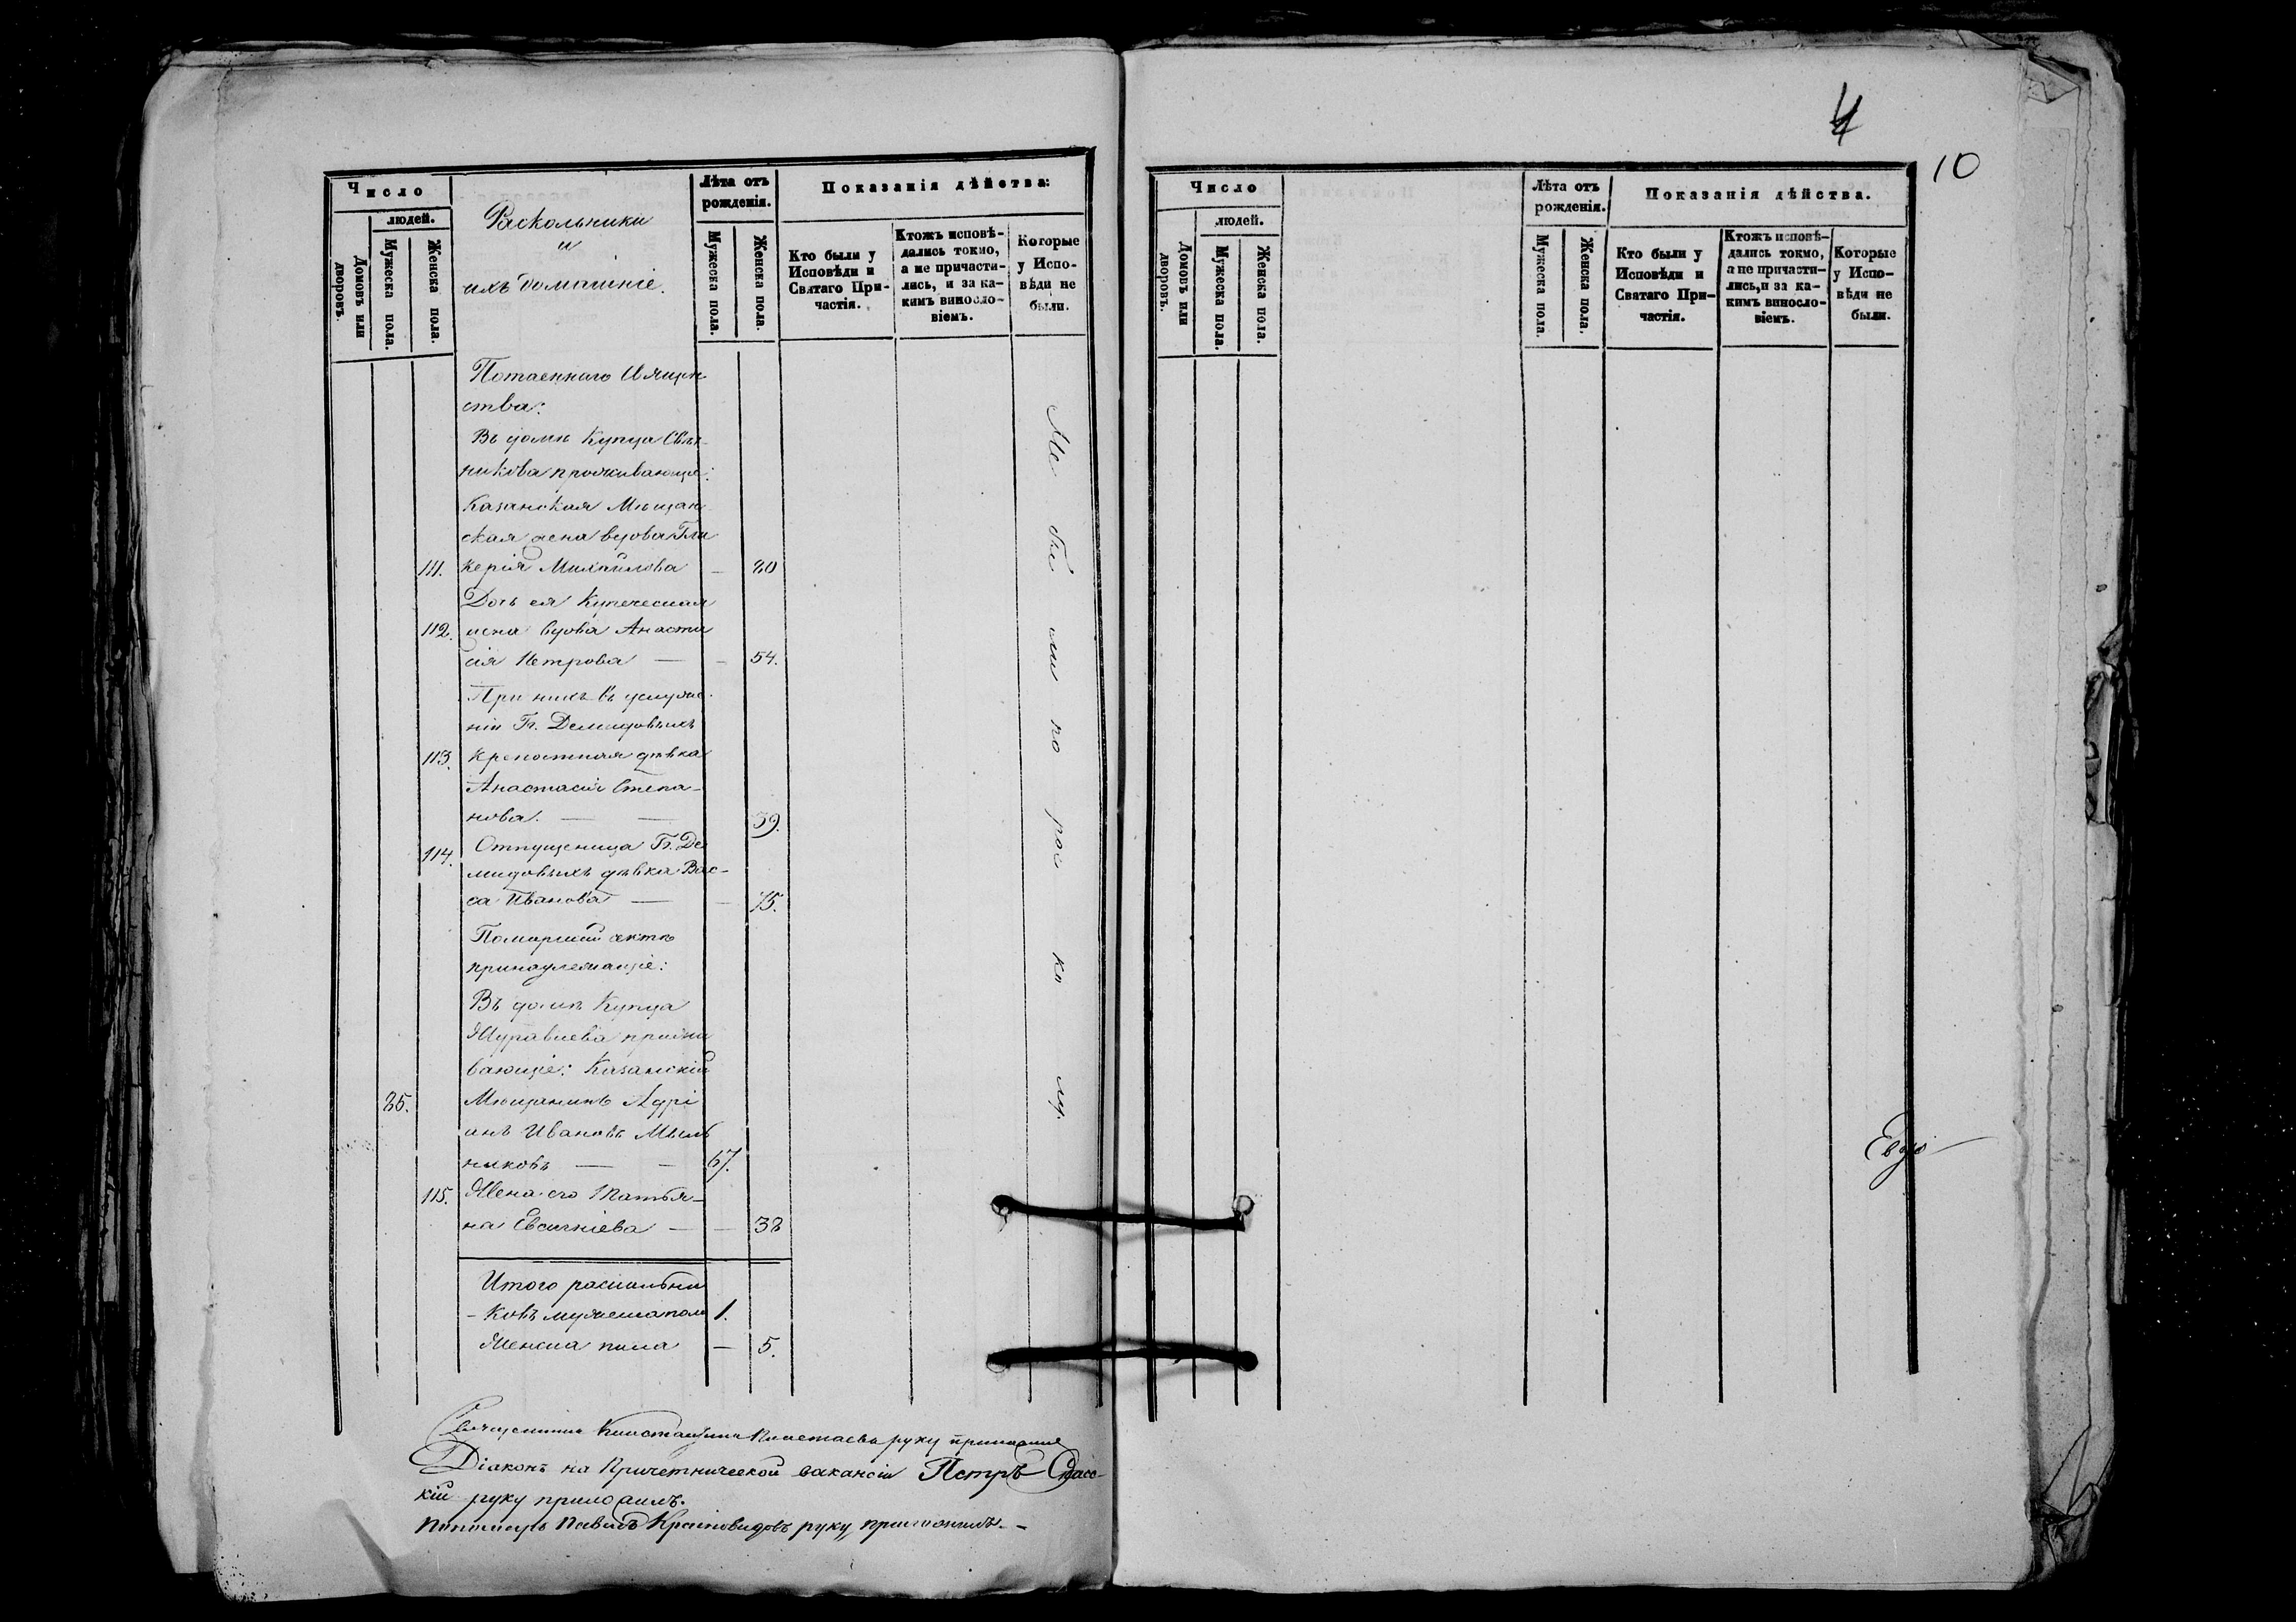 Число
людей.
Домовъ или дворовъ.
Мужеска пола.
Женска пола.
Раскольники
и
ихъ домашніе.
Лѣта отъ рожденія.
Мужеска пола.
Женска пола.
Показанія дѣйства:
Кто были у Исповѣди и Святаго Причастія.
Ктожъ исповѣдались токмо, а не причастились, и за какимъ винословіемъ.
Которые у Исповѣди не были.
Потаеннаго
ства:
Въ домѣ Купца
никова проживающіе:
Казанская Мѣщан
ская жена вдова Гли
111. керія Михайлова — 80
Дочь ея Купеческая
112. жена вдова Анаста
сія Петрова — — 54.
При нихъ въ услуже
ніи Гг. Демидовыхъ
113. крепостная дѣвка
Анастасія Степа-
нова. — — 59.
114. Отпущеница Гг. Де
мидовыхъ дѣвка Вас-
са Иванова — — 75.
Поморской сектѣ
принадлежащіе:
Въ домѣ Купца
Журавлева прожи
вающіе: Казанскій
85. Мѣщанинъ Адрі
анъ Ивановъ Мыль
никовъ — — 67.
115. Жена его Татья-
на Евсигніева — — 38
Не бы ли по рас ко лу.
Итого раскольни
-ковъ мужеска пола 1.
Женска пола — 5.
Священникъ руку приложилъ
Діаконъ на Причетнической вакансіи Петръ Спасс-
кій руку приложилъ.
Пономарь Павелъ Красновидовъ руку приложилъ. -
4
10
Число
людей.
Домовъ или дворовъ.
Мужеска пола.
Женска пола.
Лѣта отъ рожденія.
Мужеска пола.
Женска пола.
Показанія дѣйства.
Кто были у Исповѣди и Святаго Причастія.
Ктожъ исповѣдались токмо, а не причастились, и за какимъ винословіемъ.
Которые у Исповѣди не были.
Евдо